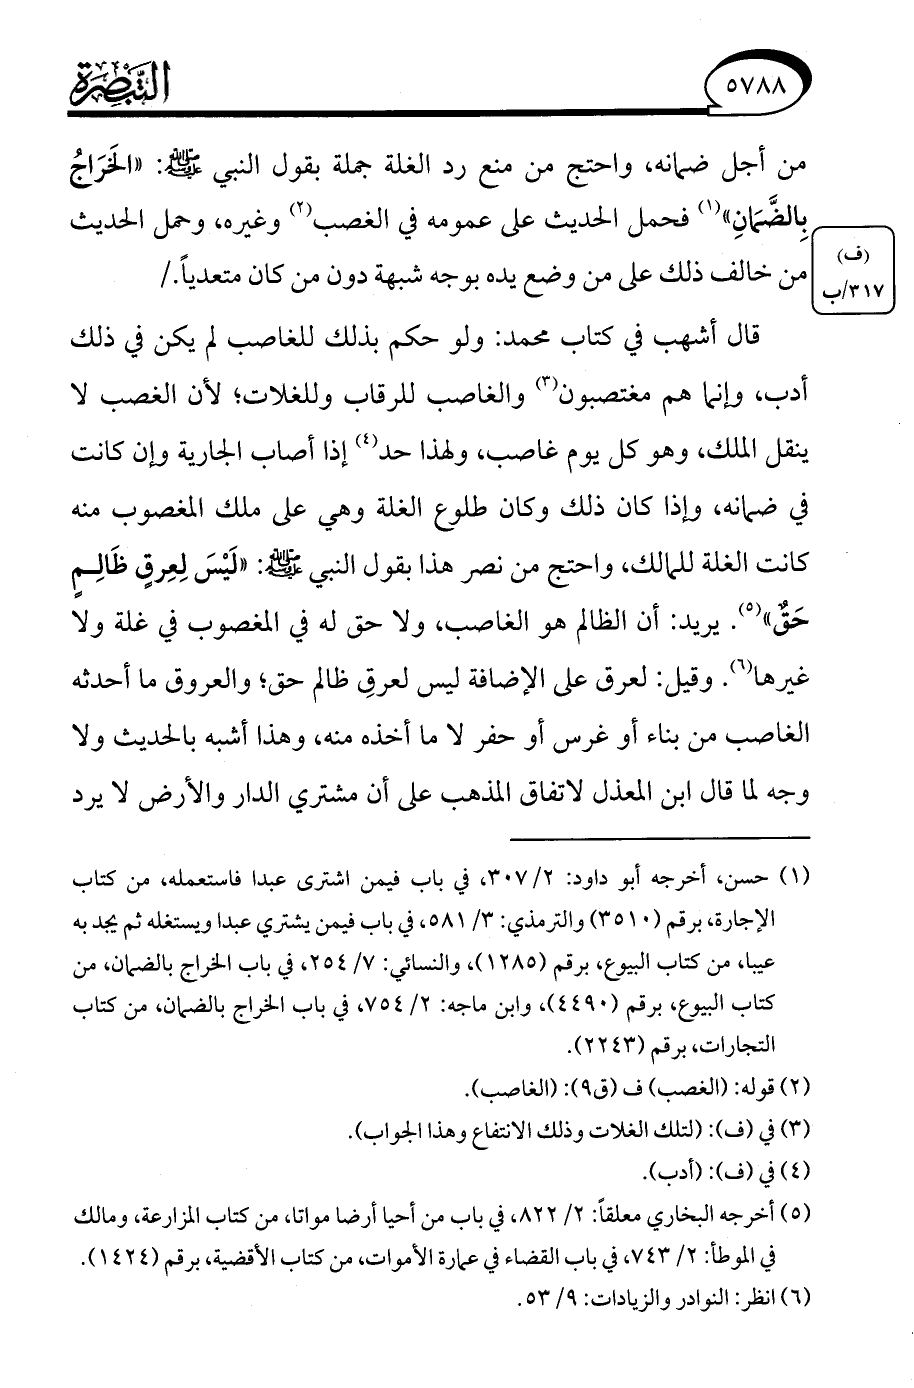 ٥٧٨٨
التبصرة
من أجل ضمانه، واحتج من منع رد الغلة جملة بقول النبي ﷺ: «الخَرَاجُ
بِالضَّمَانِ»(١) فحمل الحديث على عمومه في الغصب(٢) وغيره، وحمل الحديث
من خالف ذلك على من وضع يده بوجه شبهة دون من كان متعدياً./
(ف)
٣١٧/ب
قال أشهب في كتاب محمد: ولو حكم بذلك للغاصب لم يكن في ذلك
أدب، وإنما هم مغتصبون(٣) والغاصب للرقاب وللغلات؛ لأن الغصب لا
ينقل الملك، وهو كل يوم غاصب، ولهذا حد(٤) إذا أصاب الجارية وإن كانت
في ضمانه، وإذا كان ذلك وكان طلوع الغلة وهي على ملك المغصوب منه
كانت الغلة للمالك، واحتج من نصر هذا بقول النبي ﷺ: «لَيْسَ لِعِرقٍ ظَالِمٍ
حَقٌ»(٥). يريد: أن الظالم هو الغاصب، ولا حق له في المغصوب في غلة ولا
غيرها(٦). وقيل: لعرق على الإضافة ليس لعرقِ ظالم حق؛ والعروق ما أحدثه
الغاصب من بناء أو غرس أو حفر لا ما أخذه منه، وهذا أشبه بالحديث ولا
وجه لما قال ابن المعذل لاتفاق المذهب على أن مشتري الدار والأرض لا يرد
(١) حسن، أخرجه أبو داود: ٢/ ٣٠٧، في باب فيمن اشترى عبدا فاستعمله، من كتاب
الإجارة، برقم (٣٥١٠) والترمذي: ٣/ ٥٨١، في باب فيمن يشتري عبدا ويستغله ثم يجد به
عيبا، من كتاب البيوع، برقم (١٢٨٥)، والنسائي: ٧/ ٢٥٤، في باب الخراج بالضمان، من
كتاب البيوع، برقم (٤٤٩٠)، وابن ماجه: ٢/ ٧٥٤، في باب الخراج بالضمان، من كتاب
التجارات، برقم (٢٢٤٣).
(٢) قوله: (الغصب) ف (ق٩): (الغاصب).
(٣) في (ف): (لتلك الغلات وذلك الانتفاع وهذا الجواب).
(٤) في (ف): (أدب).
(٥) أخرجه البخاري معلقاً: ٢/ ٨٢٢، في باب من أحيا أرضا مواتا، من كتاب المزارعة، ومالك
في الموطأ: ٢/ ٧٤٣، في باب القضاء في عمارة الأموات، من كتاب الأقضية، برقم (١٤٢٤).
(٦) انظر: النوادر والزيادات: ٩/ ٥٣.